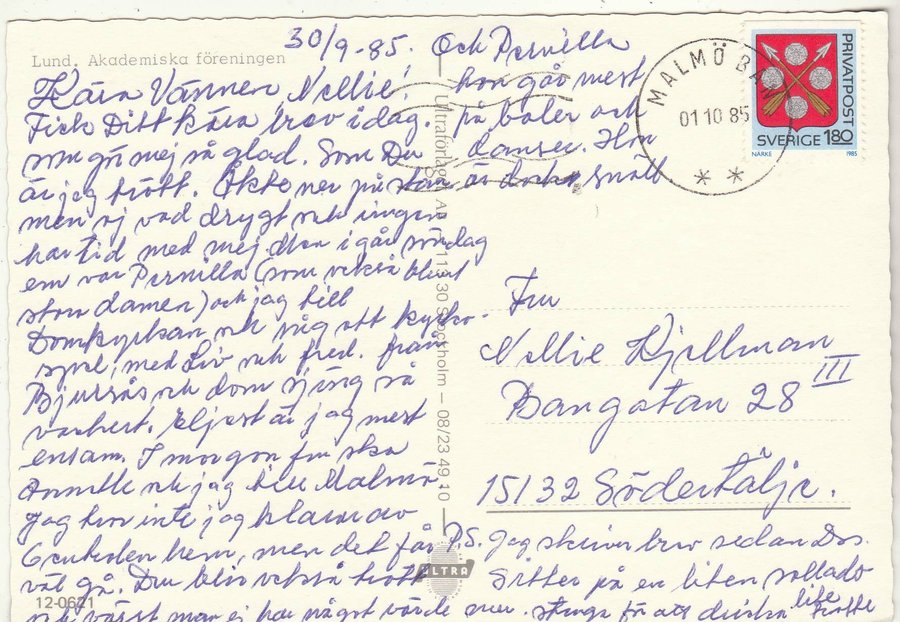 Lund. Akademiska föreningen
30/9-85.
Kära Vännen Nellie!
Fick Ditt kära brev idag.
som gör mej så glad. Som Du
är jag trött. Åkte ner på stan
men oj vad drygt och ingen
har tid med mej men igår söndag
em var Pernilla (som också blivit
stora damen) och jag till
Domkyrkan och såg ett kyrko-
spel, med Liv och fred. från
Bjursås och dom sjöng så
vackert. Eljest är jag mest
ensam. I morgon fm ska
Annette och jag till Malmö
jag tror inte jag klarar av
Centralen hem, men det får
väl gå. Du blir också trött
och värst man ej har något värde mer.
Och Pernilla
hon går mest
på baler och
danser. Hon
är dock snäll
P.S. Jag skriver brev sedan Ds.
Sitter på en liten
stuga för att dricka lite
Fru
Nellie Kjellman
Bangatan 28 III
15132 Södertälje.
MALMÖ BAN
01 10 85
PRIVATPOST
SVERIGE 1.80
NÄRKE 1985
Ultraförlaget AB 30 Stockholm – 08/23 49 10
ULTRA
12-0621